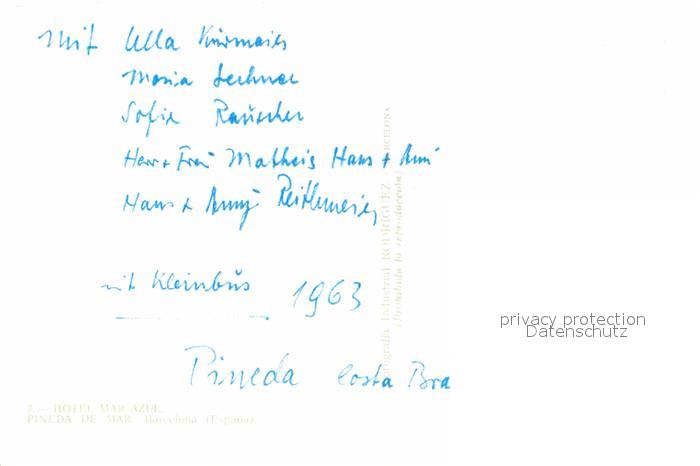 mit Ulla Kürmaier
Maria Lechner
Sofie Rauscher
Herr + Frau Matheis Hans + Anni
Hans + Anny Reithmeier
mit Kleinbus 1963
Pineda Costa Bra
7. — HOTEL MAR AZUL.
PINEDA DE MAR. Barcelona (España).
Fotografía Industrial RODRIGUEZ. BARCELONA
(Prohibida la reproducción)
privacy protection
Datenschutz